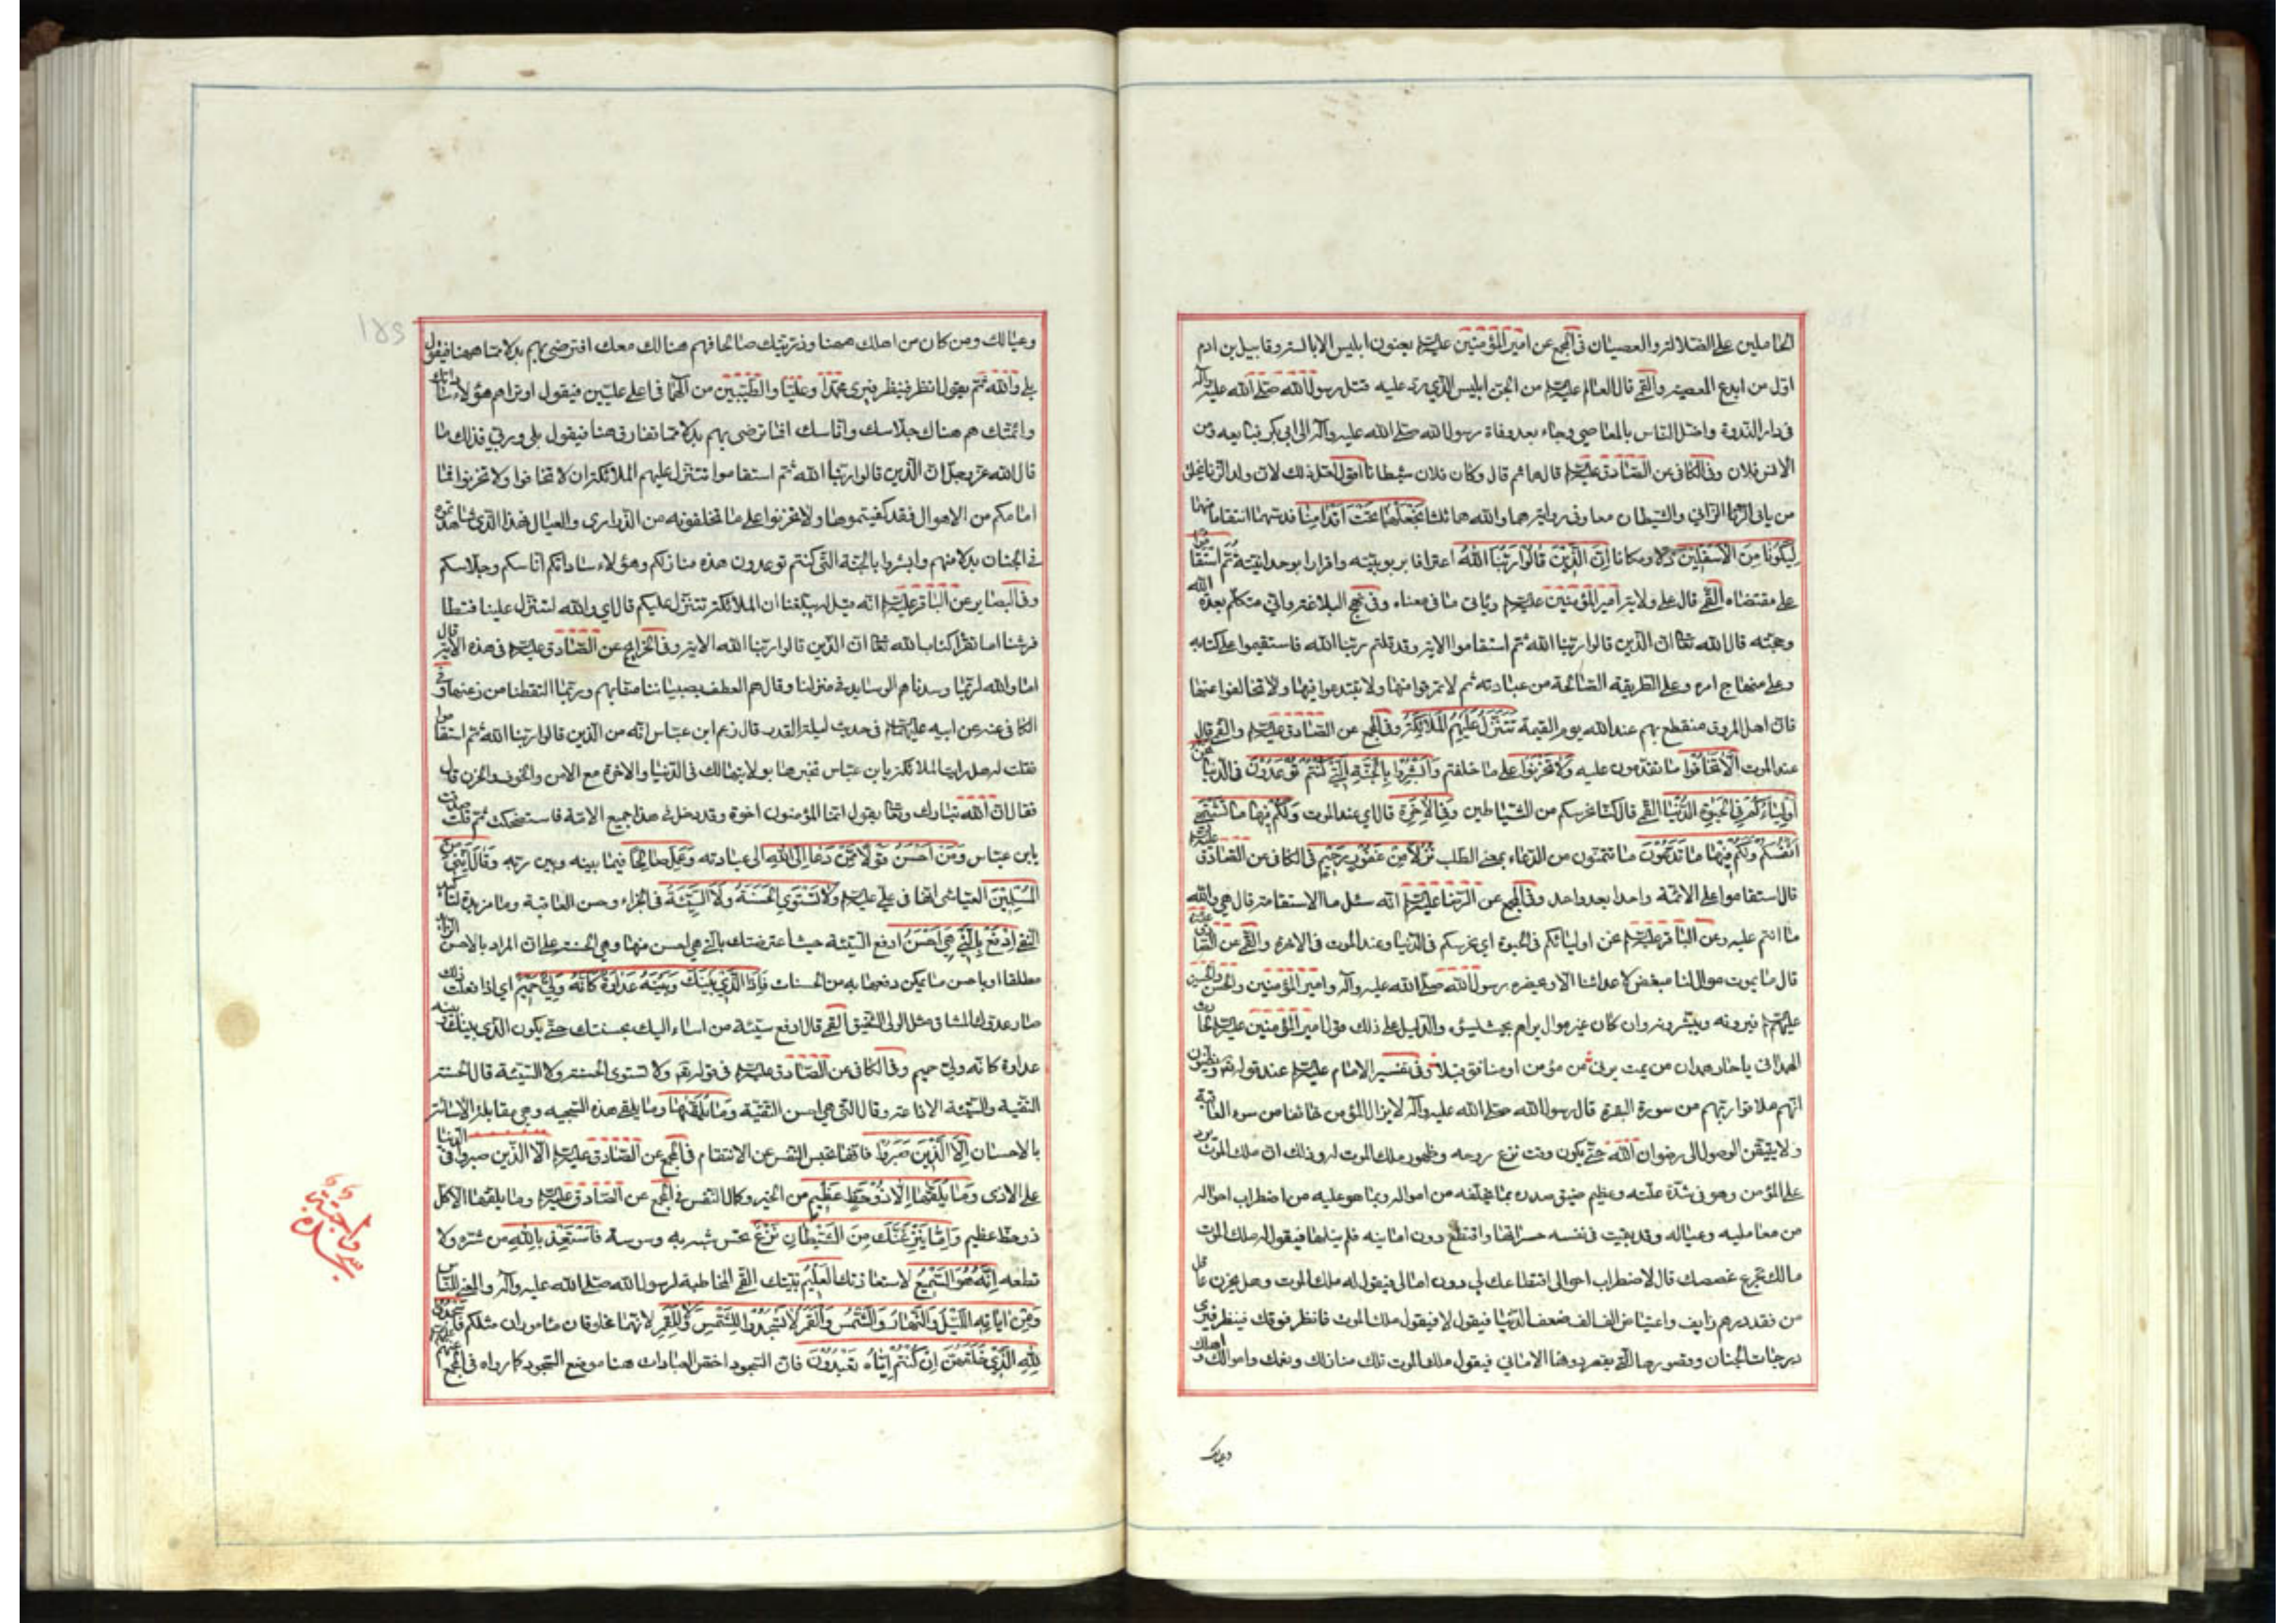 الحاملين على الضلالة والعصيان في المجمع عن امير المؤمنين عليه السلام يعنون ابليس الابالسة وقابيل بن ادم
اول من ابدع المعصية والقمي قال العالم عليه السلام من الجن ابليس الذي دبر عليه قتل رسول الله صلى الله عليه وآله
في دار الندوة واضل الناس بالمعاصي وجاء بعد وفاة رسول الله صلى الله عليه وآله الى ابي بكر فبايعه ومن
الانس فلان وفي الكافي عن الصادق عليه السلام قال هما ثم قال وكان فلان شيطانا اقول لعل ذلك لان ولد الزنا يخلق
من مائي الزاني والشيطان معا وفي رواية هما والله هما ثلثا نجعلهما تحت اقدامنا ندسهما انتقاما منهما
ليكونا من الاسفلين ذلا ومكانا ان الذين قالوا ربنا الله اعترافا بربوبيته واقرارا بوحدانيته ثم استقاموا
على مقتضاه القمي قال على ولاية امير المؤمنين عليه السلام وياتي ما في معناه وفي نهج البلاغة واني متكلم بعدة الله
وحجته قال الله تعالى ان الذين قالوا ربنا الله ثم استقاموا الاية وقد قلتم ربنا الله فاستقيموا على كتابه
وعلى منهاج امره وعلى الطريقة الصالحة من عبادته ثم لا تمرقوا منها ولا تبتدعوا فيها ولا تخالفوا عنها
فان اهل المروق منقطع بهم عند الله يوم القيمة تتنزل عليهم الملائكة وفي المجمع عن الصادق عليه السلام والقمي قال
عند الموت الا تخافوا ما تقدمون عليه ولا تحزنوا على ما خلفتم وابشروا بالجنة التي كنتم توعدون في الدنيا نحن
اولياءكم في الحيوة الدنيا القمي قال كنا نحرسكم من الشياطين وفي الاخرة قال اي عند الموت ولكم فيها ما تشتهي
انفسكم ولكم فيها ما تدعون ما تتمنون من الدعاء بمعنى الطلب نزلا من غفور رحيم في الكافي عن الصادق عليه السلام
قال استقاموا على الائمة واحدا بعد واحد وفي المجمع عن الرضا عليه السلام انه سئل ما الاستقامة قال هي والله
ما انتم عليه وعن الباقر عليه السلام نحن اولياؤكم في الحيوة اي نحرسكم في الدنيا وعند الموت في الاخرة والقمي عن الصادق
قال ما يموت موال لنا مبغض لاعدائنا الا ويحضره رسول الله صلى الله عليه وآله وامير المؤمنين والحسن والحسين
عليهم السلام فيرونه ويبشرونه وان كان غير موال يراهم بحيث يسوؤه والدليل على ذلك قول امير المؤمنين عليه السلام لحارث
الهمداني يا حار همدان من يمت يرني من مؤمن او منافق قبلا وفي تفسير الامام عليه السلام عند قوله تعالى ويظنون
انهم ملاقوا ربهم من سورة البقرة قال رسول الله صلى الله عليه وآله لا يزال المؤمن خائفا من سوء العاقبة
ولا يتيقن الوصول الى رضوان الله حتى يكون وقت نزع روحه وظهور ملك الموت له وذلك ان ملك الموت يرد
على المؤمن وهو في شدة علته وعظيم ضيق صدره بما يخلفه من امواله وبما هو عليه من اضطراب احواله
من معامليه وعياله وقد بقيت في نفسه حسراتها واقتطع دون امانيه فلم ينلها فيقول له ملك الموت
مالك تجرع غصصك قال لاضطراب احوالي اقتطاعك لي دون امالي فيقول له ملك الموت وهل يحزن عاقل
من فقد درهم زايف واعتياض الف الف ضعف الدنيا فيقول لا فيقول ملك الموت فانظر فوقك فينظر فيرى
درجات الجنان وقصورها التي يقصر دونها الاماني فيقول ملك الموت تلك منازلك ونعمك واموالك واهلك
وعيالك
وعيالك ومن كان من اهلك ههنا وذريتك صالحا فهم هنالك معك افترضى بهم بدلا مما ههنا فيقول
بلى والله ثم يقول انظر فينظر فيرى محمدا وعليا والطيبين من آلهما في اعلى عليين فيقول اوتراهم هؤلاء ساداتك
وائمتك هم هناك جلاسك واناسك افما ترضى بهم بدلا مما تفارق هنا فيقول بلى وربي فذلك ما
قال الله عز وجل ان الذين قالوا ربنا الله ثم استقاموا تتنزل عليهم الملائكة ان لا تخافوا ولا تحزنوا فما
امامكم من الاهوال فقد كفيتموها ولا تحزنوا على ما تخلفونه من الذراري والعيال فهذا الذي شاهدتموه
في الجنان بدلا منهم وابشروا بالجنة التي كنتم توعدون هذه منازلكم وهؤلاء ساداتكم اناسكم وجلاسكم
وفي البصاير عن الباقر عليه السلام انه قيل له يبلغنا ان الملائكة تتنزل عليكم قال اي والله لتتنزل علينا فتطا
فرشنا اما تقرأ كتاب الله تعالى ان الذين قالوا ربنا الله الاية وفي الخرايج عن الصادق عليه السلام في هذه الاية قال
اما والله لربما وسدناهم الوسايد في منزلنا وقال هم الطف بصبياننا منا بهم وربما التقطنا من زغبها وفي
الكافي عنه عن ابيه عليهما السلام في حديث ليلة القدر قال زعم ابن عباس انه من الذين قالوا ربنا الله ثم استقاموا
فقلت له هل رايت الملائكة يا بن عباس تخبرها بولايتها لك في الدنيا والاخرة مع الامن والخوف والحزن قال
فقال ان الله تبارك وتعالى يقول انما المؤمنون اخوة وقد دخل في هذا جميع الامة فاستضحكت ثم قلت صدقت
يا بن عباس ومن احسن قولا ممن دعا الى الله الى عبادته وعمل صالحا فيما بينه وبين ربه وقال انني من
المسلمين العياشي انها في علي عليه السلام ولا تستوي الحسنة ولا السيئة في الجزاء وحسن العاقبة وما مزيدة لتأكيد
النفي ادفع بالتي هي احسن ادفع السيئة حيث اعترضتك بالتي هي احسن منها وهي الحسنة على ان المراد بالاحسن الزائد
مطلقا او باحسن ما يمكن دفعها به من الحسنات فاذا الذي بينك وبينه عداوة كانه ولي حميم اي اذا فعلت ذلك
صار عدوك المشاق مثل الولي الشفيق القمي قال ادفع سيئة من اساء اليك بحسنتك حتى يكون الذي بينك وبينه
عداوة كانه ولي حميم وفي الكافي عن الصادق عليه السلام في قوله تعالى ولا تستوي الحسنة ولا السيئة قال الحسنة
التقية والسيئة الاذاعة وقال التي هي احسن التقية وما يلقيها وما يلقى هذه السجية وهي مقابلة الاسائة
بالاحسان الا الذين صبروا فانها تحبس النفس عن الانتقام في المجمع عن الصادق عليه السلام الا الذين صبروا في الدنيا
على الاذى وما يلقيها الا ذو حظ عظيم من الخير وكمال النفس في المجمع عن الصادق عليه السلام وما يلقيها الا كل
ذو حظ عظيم واما ينزغنك من الشيطان نزغ نخس شبه به وسوسة فاستعذ بالله من شره ولا
تطعه انه هو السميع لاستعاذتك العليم بنيتك القمي المخاطبة لرسول الله صلى الله عليه وآله والمعنى للناس
ومن اياته الليل والنهار والشمس والقمر لا تسجدوا للشمس ولا للقمر لانهما مخلوقان مأموران مثلكم واسجدوا
لله الذي خلقهن ان كنتم اياه تعبدون فان السجود اخص العبادات هنا موضع السجود كما رواه في المجمع عنهم عليهم السلام